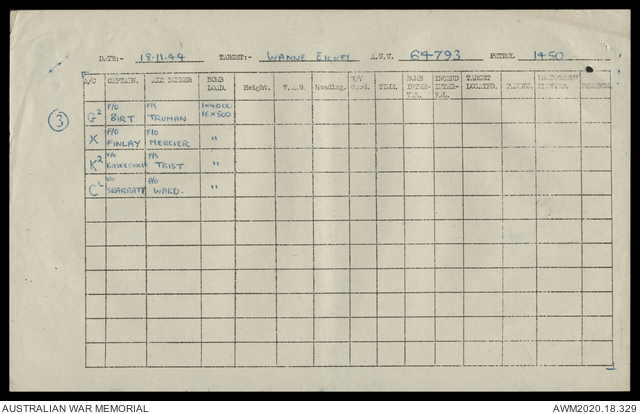 DATE:- 18.11.44 TARGET:- WANNE EICKEL A.U.W. 64793 PETROL 1450
A/C CAPTAIN. AIR BOMBER BOMB LOAD. Height. T.A.S. Heading. TIME. BOMB INTER- VAL INCEND INTER- VAL TARGET LOCATED.
3
G2 F/O BIRT F/S TRUMAN 1x4000 16x500
X F/O FINLAY F/O MERCIER "
K2 F/O F/S TRIST "
C2 F/O SKARRATT F/O WARD. "
AUSTRALIAN WAR MEMORIAL AWM2020.18.329